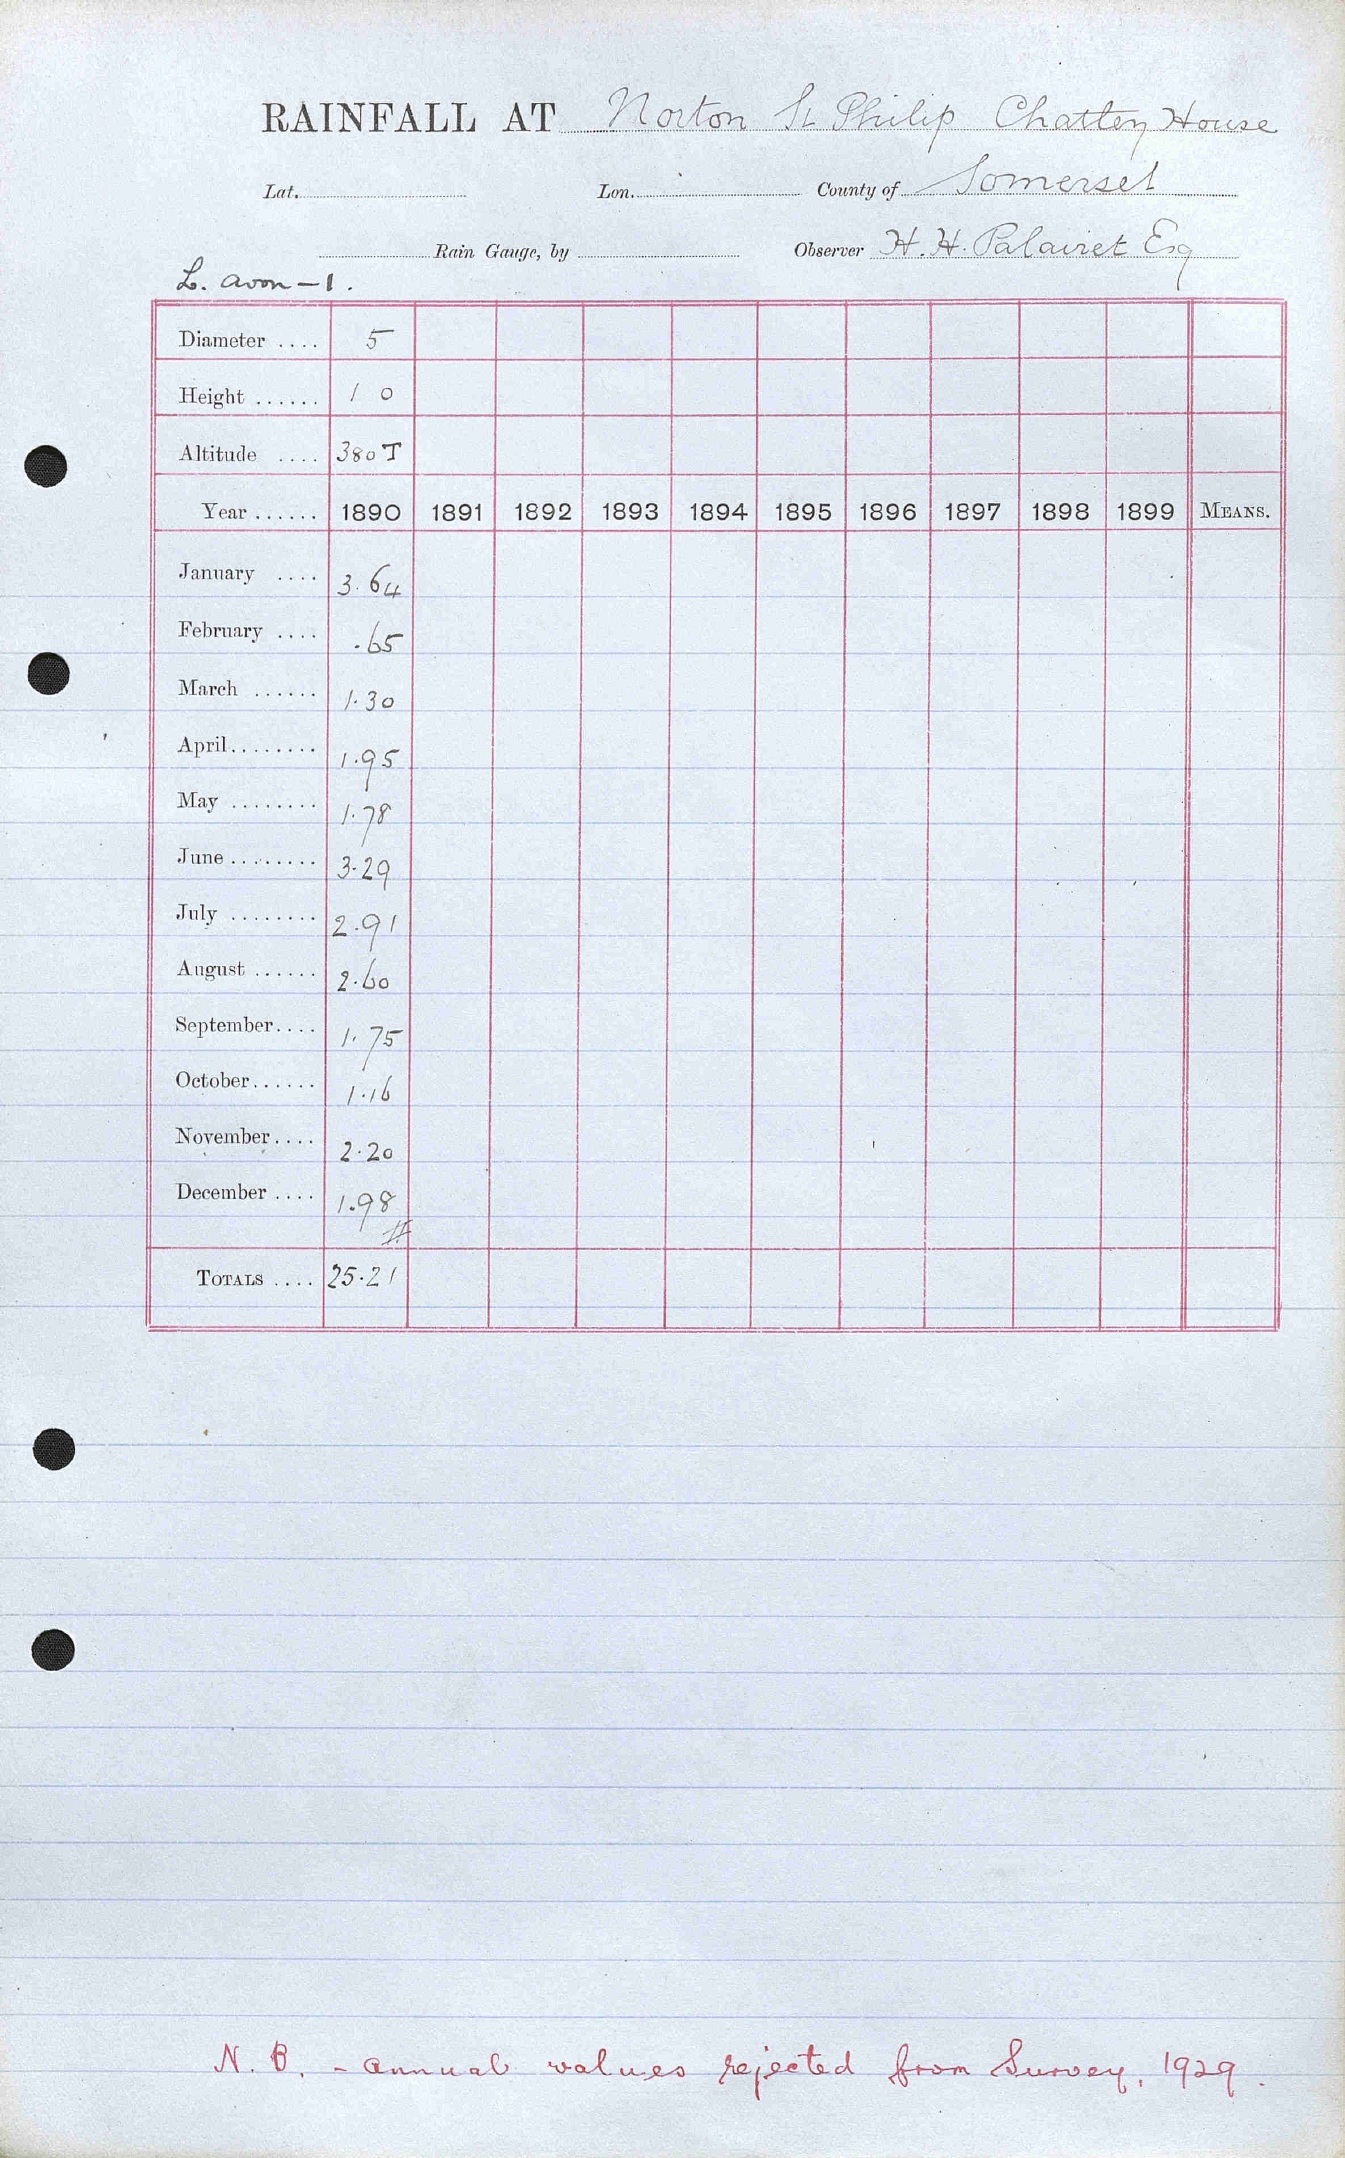 RAINFALL AT Norton St Philip Chatley House
Lat. Lon. County of Somerset
Rain Gauge, by Observer H. H. Palairet Esq
L. Avon - 1.
Diameter .... 5
Height ...... 1 0
Altitude .... 380 T
Year ...... 1890 1891 1892 1893 1894 1895 1896 1897 1898 1899 MEANS.
January .... 3.64
February .... .65
March ...... 1.30
April........ 1.95
May ........ 1.78
June ........ 3.29
July ........ 2.91
August ...... 2.60
September.... 1.75
October...... 1.16
November.... 2.20
December .... 1.98
TOTALS .... 25.21
N.B. - annual values rejected from Survey, 1929.